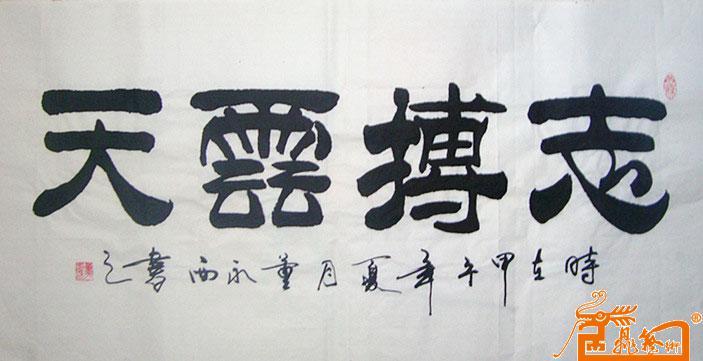 志搏雲天
時在甲午年夏月董永西書之